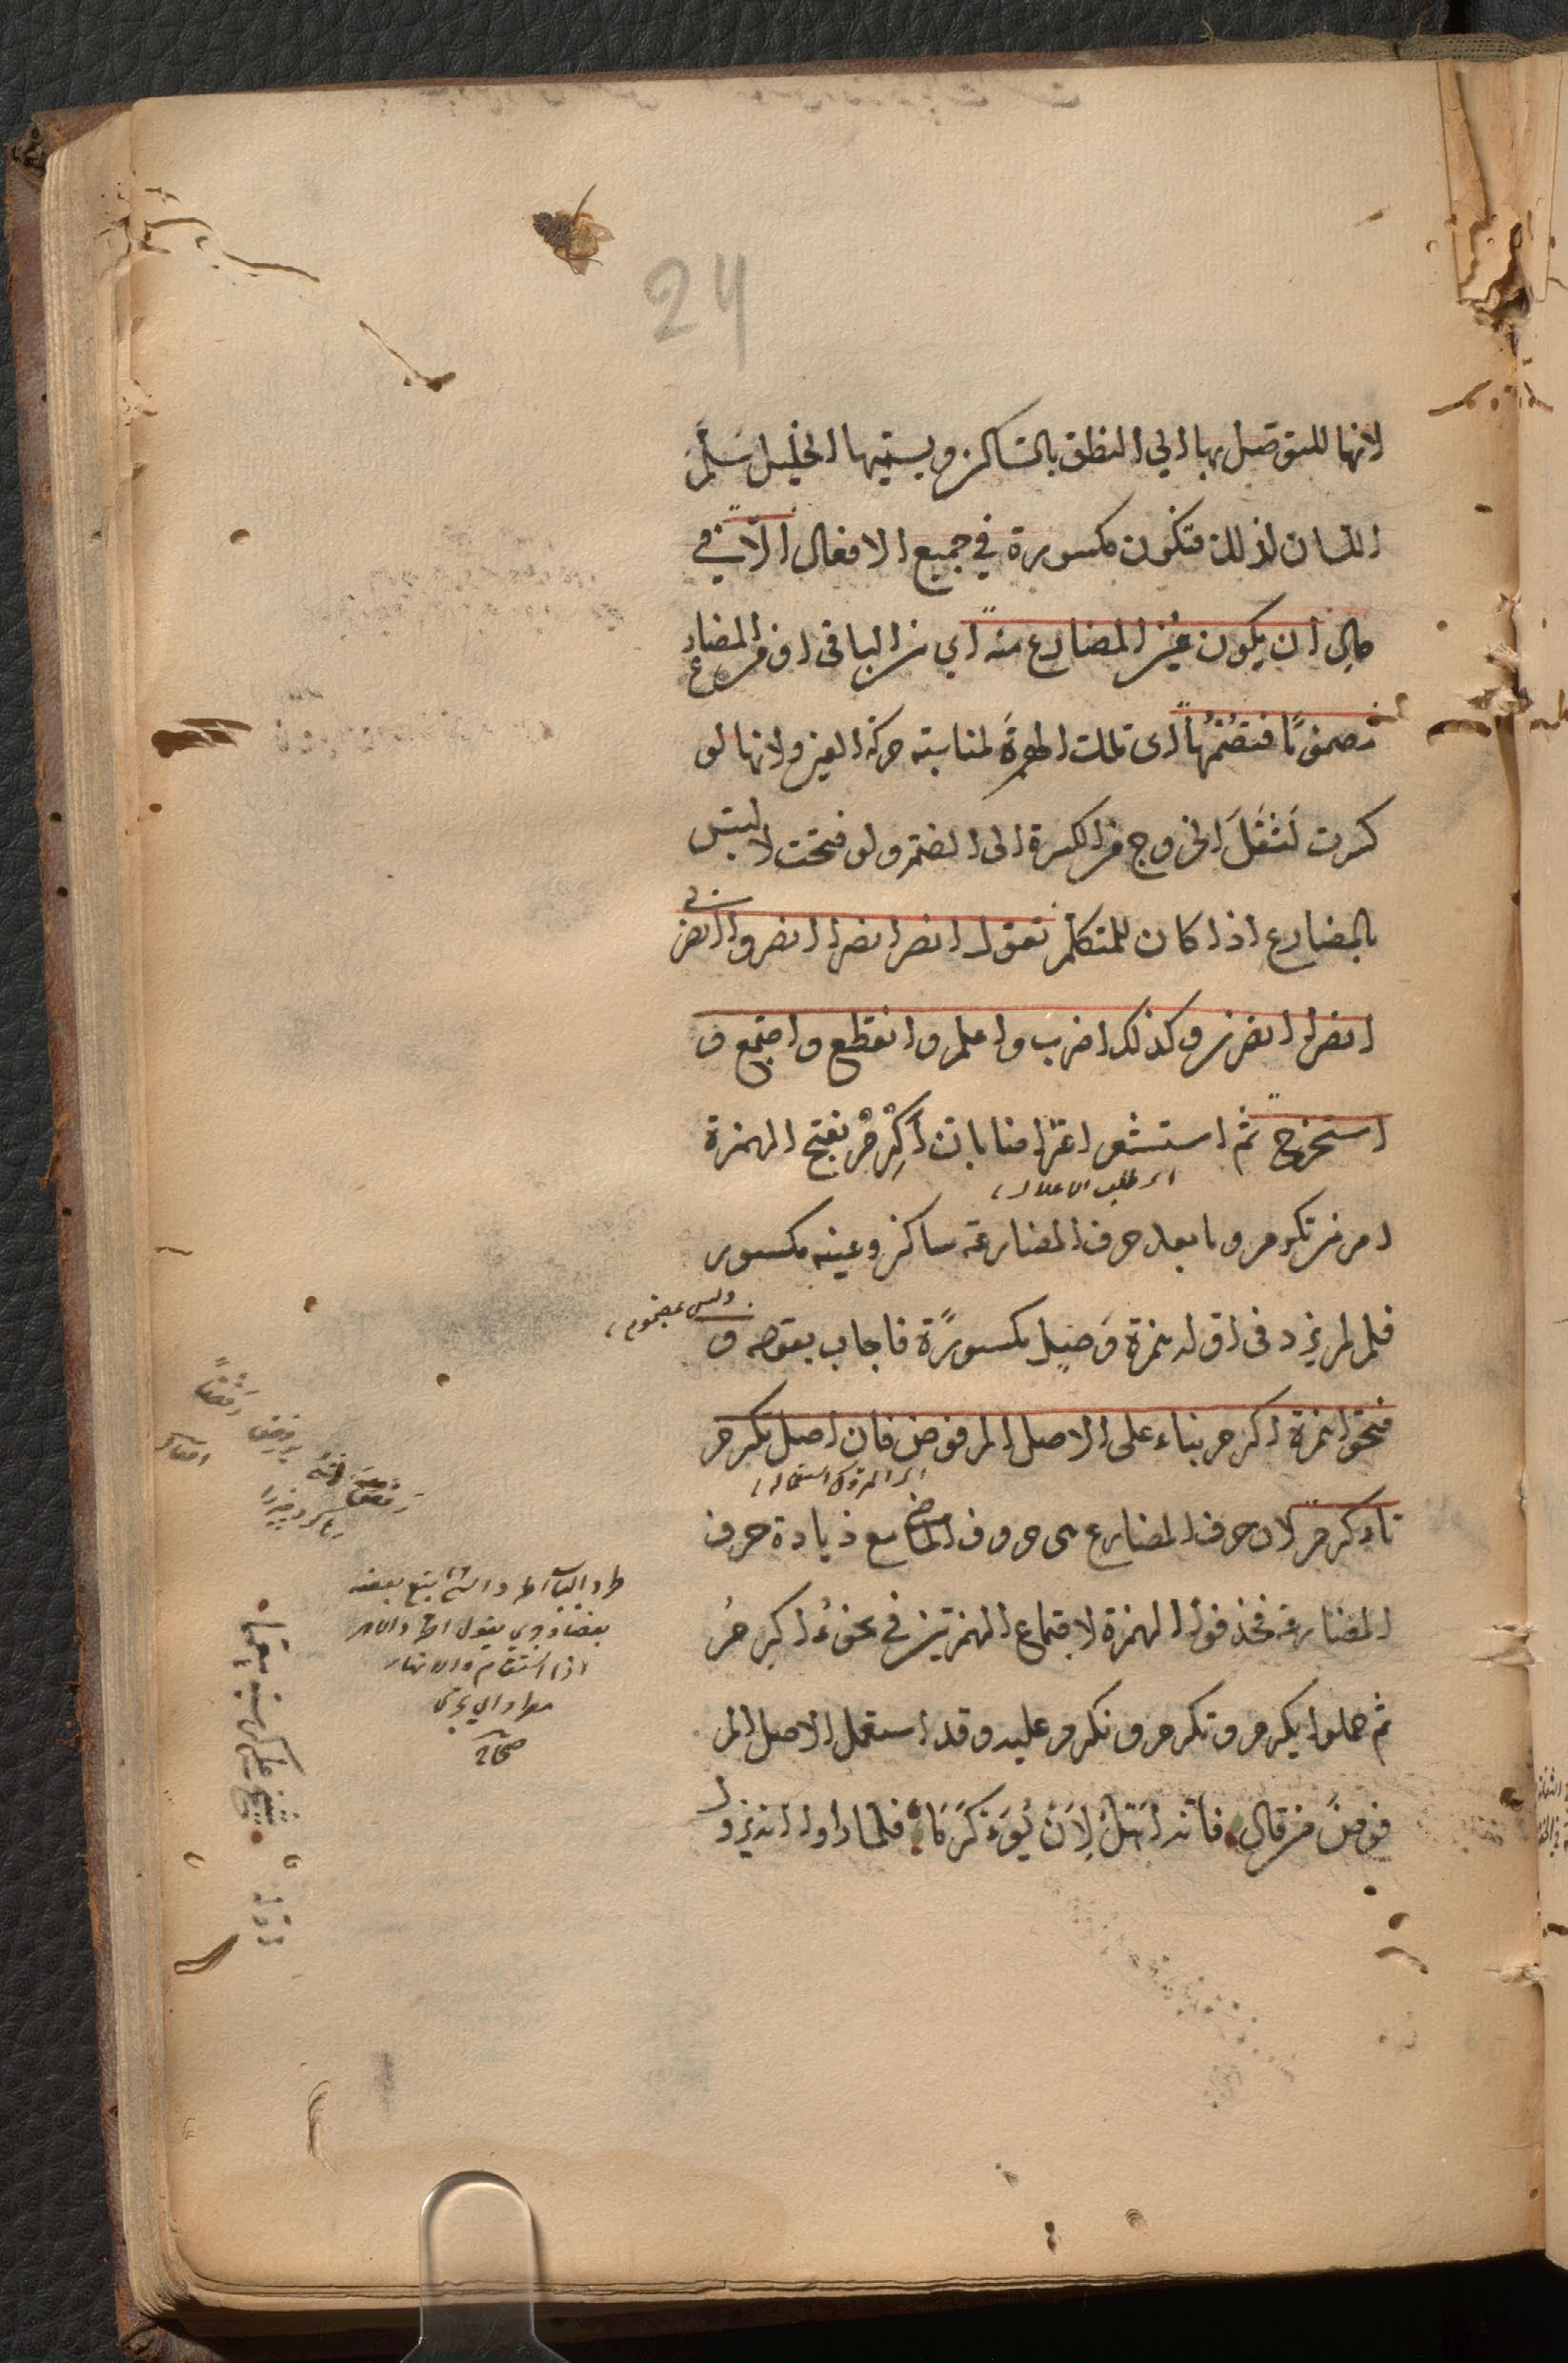 24
لانها للتوصل بها الي النطق بالساكن ويسميها الخليل سلّم
اللسان لذلك فتكون مكسورة في جميع الافعال الّا في
حال ان يكون عين المضارع منه اي من الباقي او من المضارع
مضمومًا فتضمّها اى تلك الهمزةَ لمناسبته حركة العين ولانها لو
كسرت لَثَقُلَ الخروج من الكسرة الى الضمة ولو فتحت لالتبس
بالمضارع اذا كان للمتكلم تقول انصر انصرا انصروا انصرى
انصرا انصرن وكذلك اضرب واعلم وانقطع واجتمع و
استخرج ثم استشعر اعتراضا بانّ أَكْرِمْ بفتح الهمزة
اى طلب الاعلام
امر من تكرم وما بعد حرف المضارعة ساكن وعينه مكسور
وليس بمضموم
فلم لم يزد فى اوله همزة وَصلٍ مكسورًة فاجاب بقوله و
فتحوا همزة اكرم بناء على الاصل المرفوض فان اصل تكرم
اى المتروك استعماله
تاءكرم لان حرف المضارع هى حروف الماضي مع زيادة حرف
المضارعة فحذفوا الهمزة لاجتماع الهمزتين في نحو ءُاكرمُ
ثم حملوا يكرم وتكرم ونكرم عليه وقد استعمل الاصل المر
فوضَ من قال فانه اَهَلٌ لِاَنْ يُوَءكرَمَا فلما راوا انه يزول
اطرد الشئ تبع بعضه
بعضا وجرى يقول اطرد الامر
اذا استقام والانهار
تطرد اي تجرى
صحاح